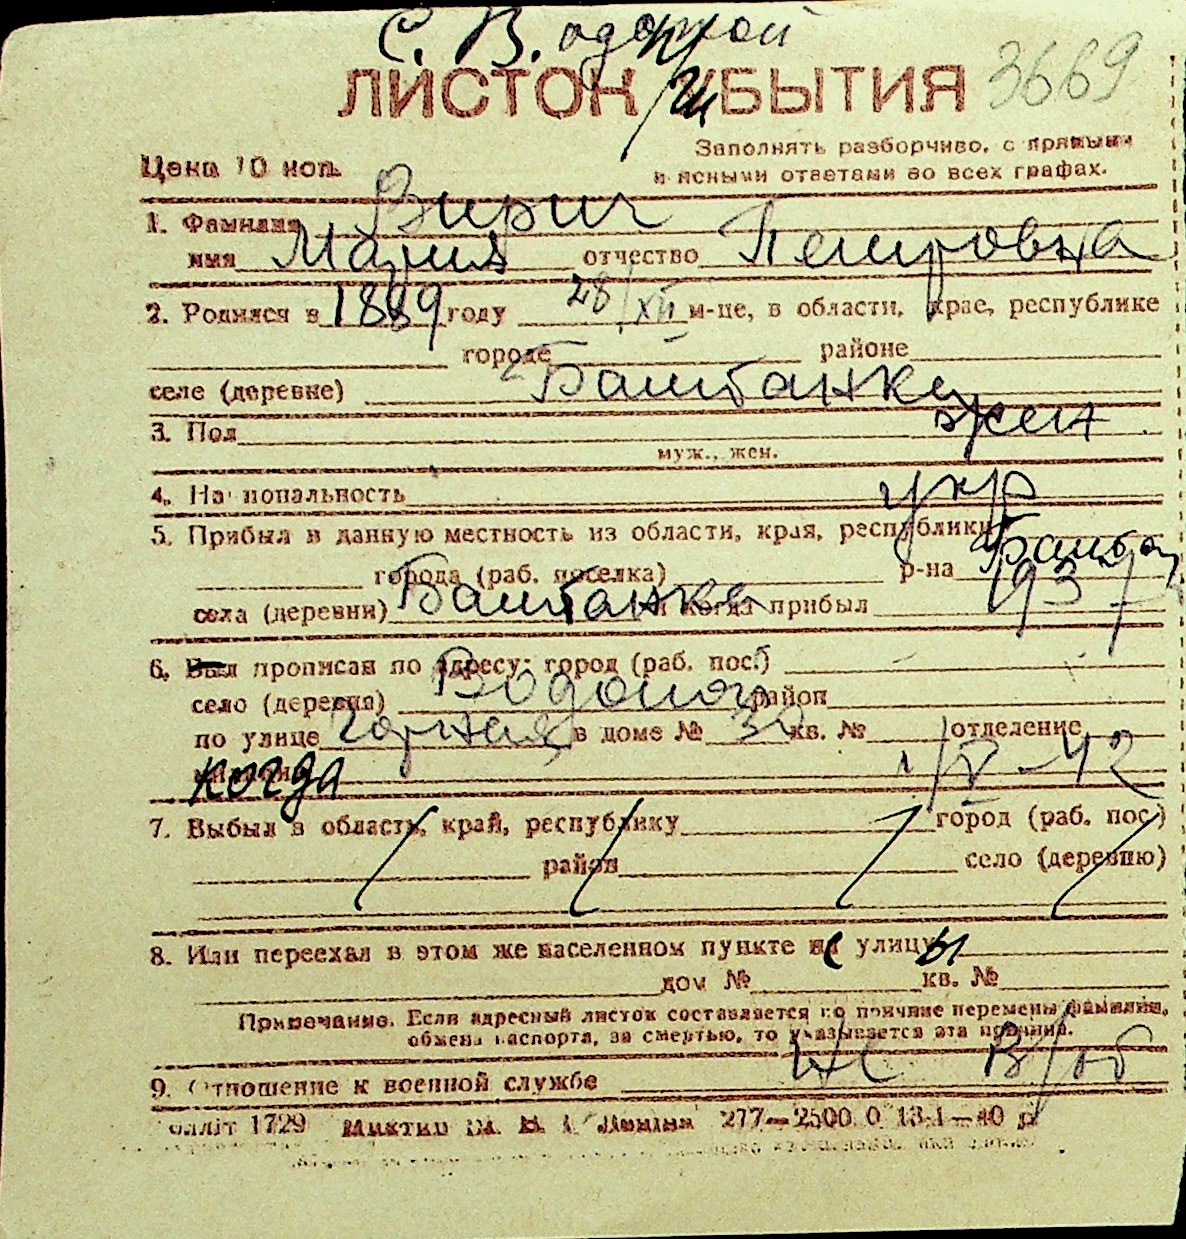 С. Водопой
ЛИСТОК УБЫТИЯ 3669
Цена 10 коп.
Заполнять разборчиво, с прямыми
и ясными ответами во всех графах.
1. Фамилия Вирич
имя Мария отчество Петровна
2. Родился в 1889 году 28/XII м-це, в области, крае, республике
городе районе
селе (деревне) Баштанке
3. Пол жен
муж., жен.
4. Национальность укр
5. Прибыл в данную местность из области, края, республики
города (раб. поселка) р-на Баштан
села (деревни) Баштанка и когда прибыл 1937
6. Был прописан по адресу: город (раб. пос.)
село (деревня) Водопой район
по улице Горная в доме № 32 кв. № отделение
когда 1/IV-42
7. Выбыл в область, край, республику город (раб. пос.)
район село (деревню)
8. Или переехал в этом же населенном пункте с улицы
дом № кв. №
Примечание. Если адресный листок составляется по причине перемены фамилии,
обмена паспорта, за смертью, то указывается эта причина.
9. Отношение к военной службе не в/об
1729 277—2500 0 13-1—40 р